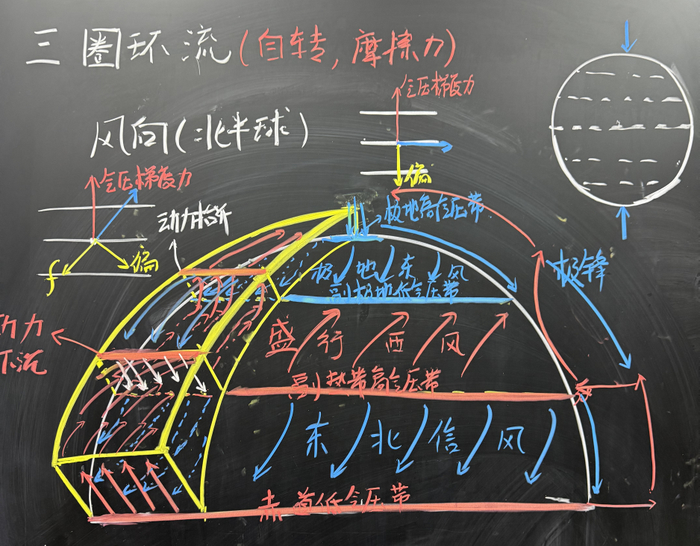 三圈环流(自转,摩擦力)
气压梯度力
风向(北半球)
偏
气压梯度力
动力抬升
偏
f
极地高气压带
极地东风
极锋
副极地低气压带
盛行西风
动力
下沉
副热带高气压带
东北信风
赤道低气压带